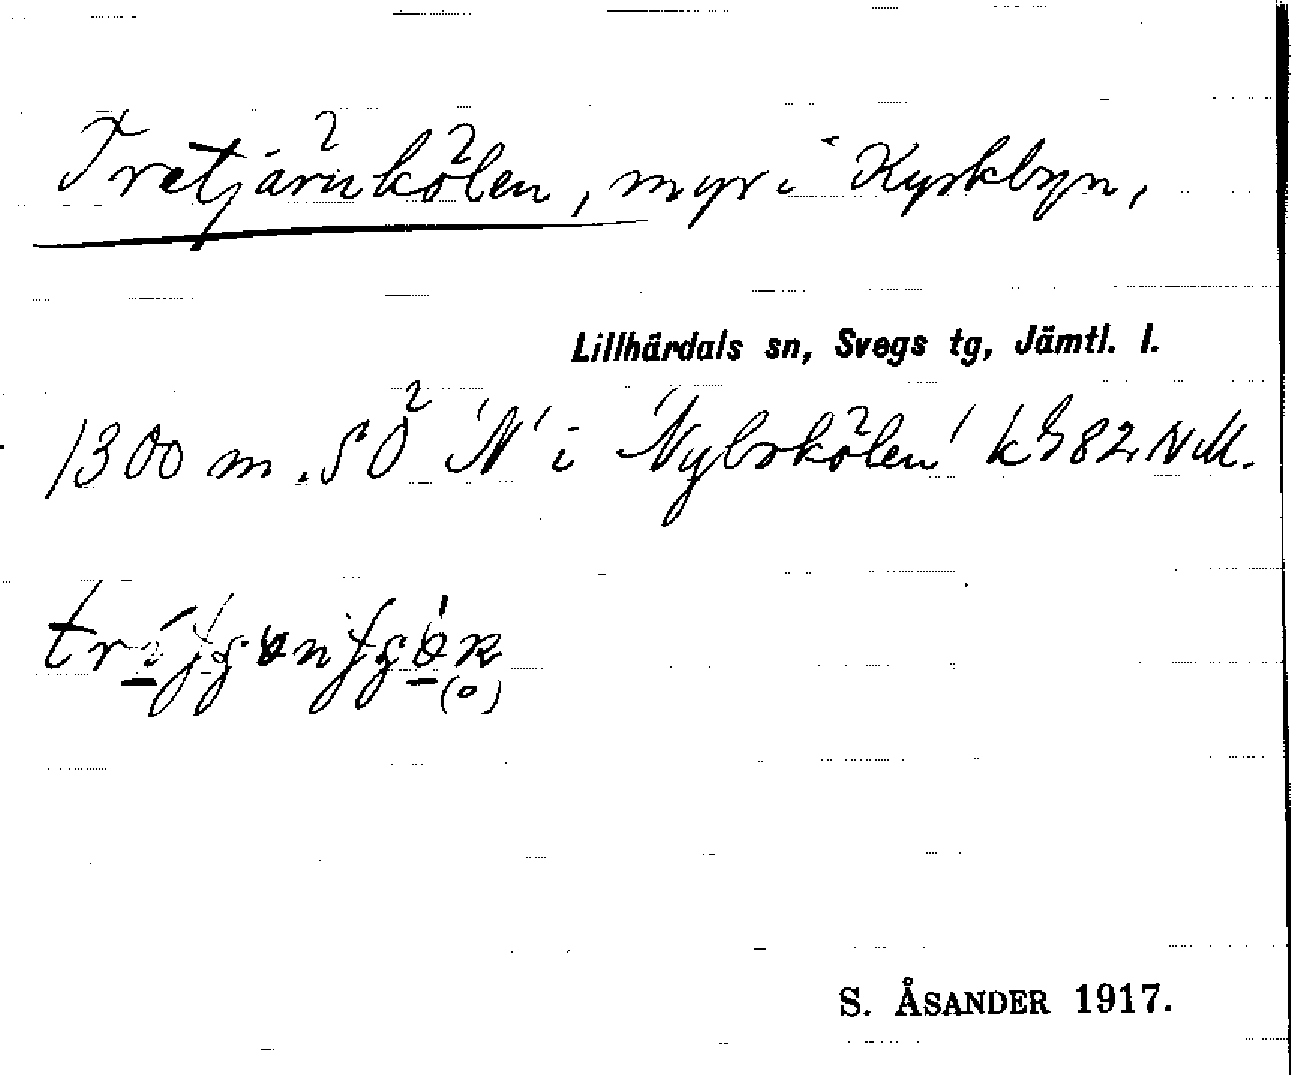 Tretjärnkölen, myr i Kyrkbyn,
Lillhärdals sn, Svegs tg, Jämtl. l.
1300 m. SÖ 'N' i 'Nybrkölen' k 82 NM.
S. ÅSANDER 1917.